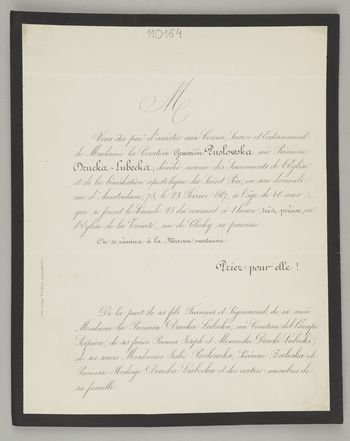 110164
M
Vous êtes prié d'assister aux Convoi, Service et Enterrement
de Madame la Comtesse Geneviève Pusłowska, née Princesse
Drucka-Lubecka, décédée munie des Sacrements de l'Eglise
et de la bénédiction apostolique du Saint Père, en son domicile
rue d'Amsterdam, 73, le 23 Février 1867, à l'âge de 46 ans,
qui se feront le Lundi 25 du courant à 1 heure très précise, en
l'Eglise de la Trinité, rue de Clichy sa paroisse.
On se réunira à la Maison mortuaire.
Priez pour elle!
De la part de ses fils François et Sigismond, de sa mère
Madame la Princesse Drucka Lubecka, née Comtesse del Campo
Scipion, de ses frères Princes Joseph et Alexandre Drucki Lubecki,
de ses sœurs Mesdames Julie Pusłowska, Sévérine Zaleska et
Princesse Hedvige Drucka Lubecka et des autres membres de
sa famille.